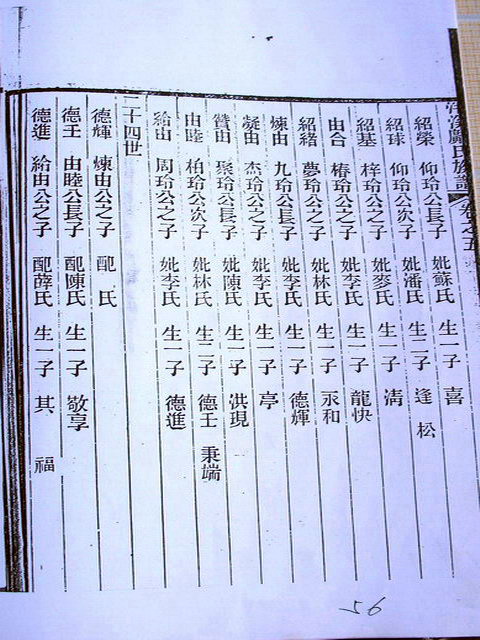 氏族譜 卷之五
紹榮 仰玲公長子 妣蘇氏 生一子 喜
紹球 仰玲公次子 妣潘氏 生二子 逢 松
紹基 梓玲公之子 妣麥氏 生一子 清
由合 椿玲公之子 妣李氏 生一子 龍快
紹緒 夢玲公之子 妣林氏 生一子 永和
煉由 九玲公長子 妣李氏 生一子 德輝
凝由 杰玲公之子 妣李氏 生一子 亭
贊由 聚玲公長子 妣陳氏 生一子 洪現
由睦 柏玲公次子 妣林氏 生二子 德王 秉端
給由 周玲公之子 妣李氏 生一子 德進
二十四世
德輝 煉由公之子 配 氏
德王 由睦公長子 配陳氏 生一子 敬享
德進 給由公之子 配薛氏 生一子 其 福
56